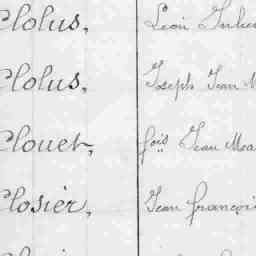 Clolus, Léon Julien
Clolus, Joseph Jean M
Clouet, fois Jean Ma
Closier, Jean françois